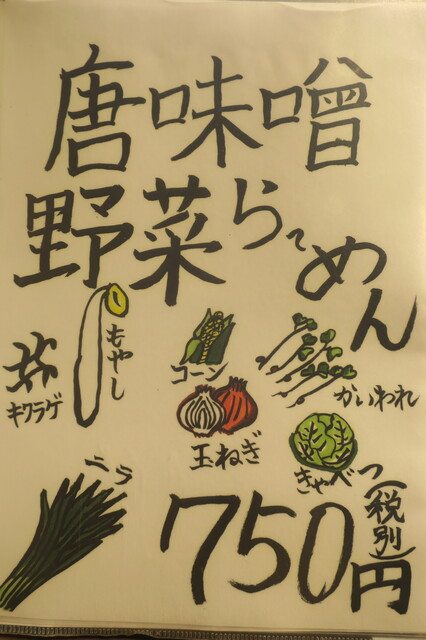 唐味噌
野菜らーめん
もやし
キクラゲ
コーン
かいわれ
玉ねぎ
きゃべつ
ニラ
750円
(税別)